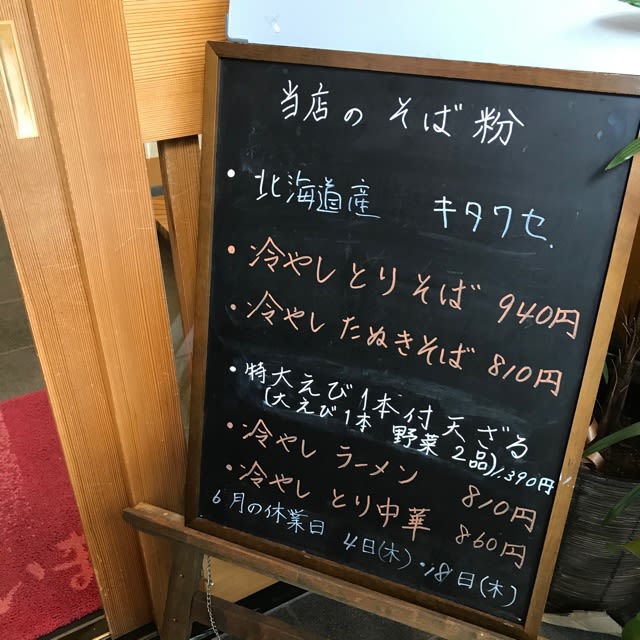 当店のそば粉
・北海道産 キタワセ.
・冷やしとりそば 940円
・冷やしたぬきそば 810円
・特大えび1本付天ざる
(大えび1本 野菜2品)1,390円
・冷やしラーメン 810円
・冷やしとり中華 860円
6月の休業日 4日(木)・18日(木)